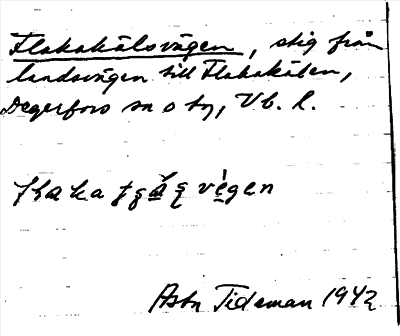 Flakakålsvägen, stig från
landsvägen till Flakakålen,
Degerfors sn o by, Vb. l.
Astr Tideman 1942